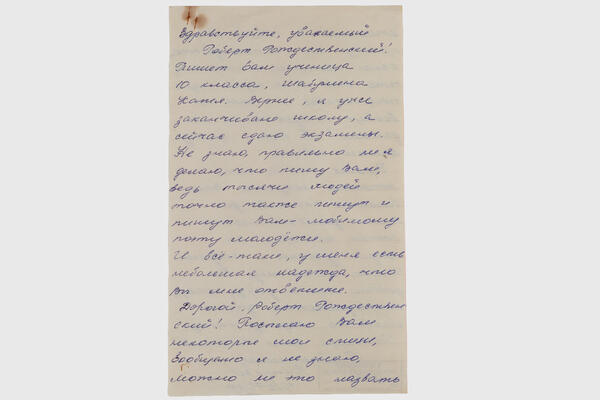 Здравствуйте, уважаемый
Роберт Рождественский!
Пишет Вам ученица
10 класса, Шабунина
Катя. Вернее, я уже
заканчиваю школу, а
сейчас сдаю экзамены.
Не знаю, правильно ли я
делаю, что пишу Вам,
ведь тысячи людей
точно также пишут и
пишут Вам - любимому
поэту молодёжи.
И всё-таки, у меня есть
небольшая надежда, что
Вы мне ответите.
Дорогой Роберт Рождествен
ский! Посылаю Вам
некоторые мои стихи,
Вообщем я не знаю,
можно ли это назвать